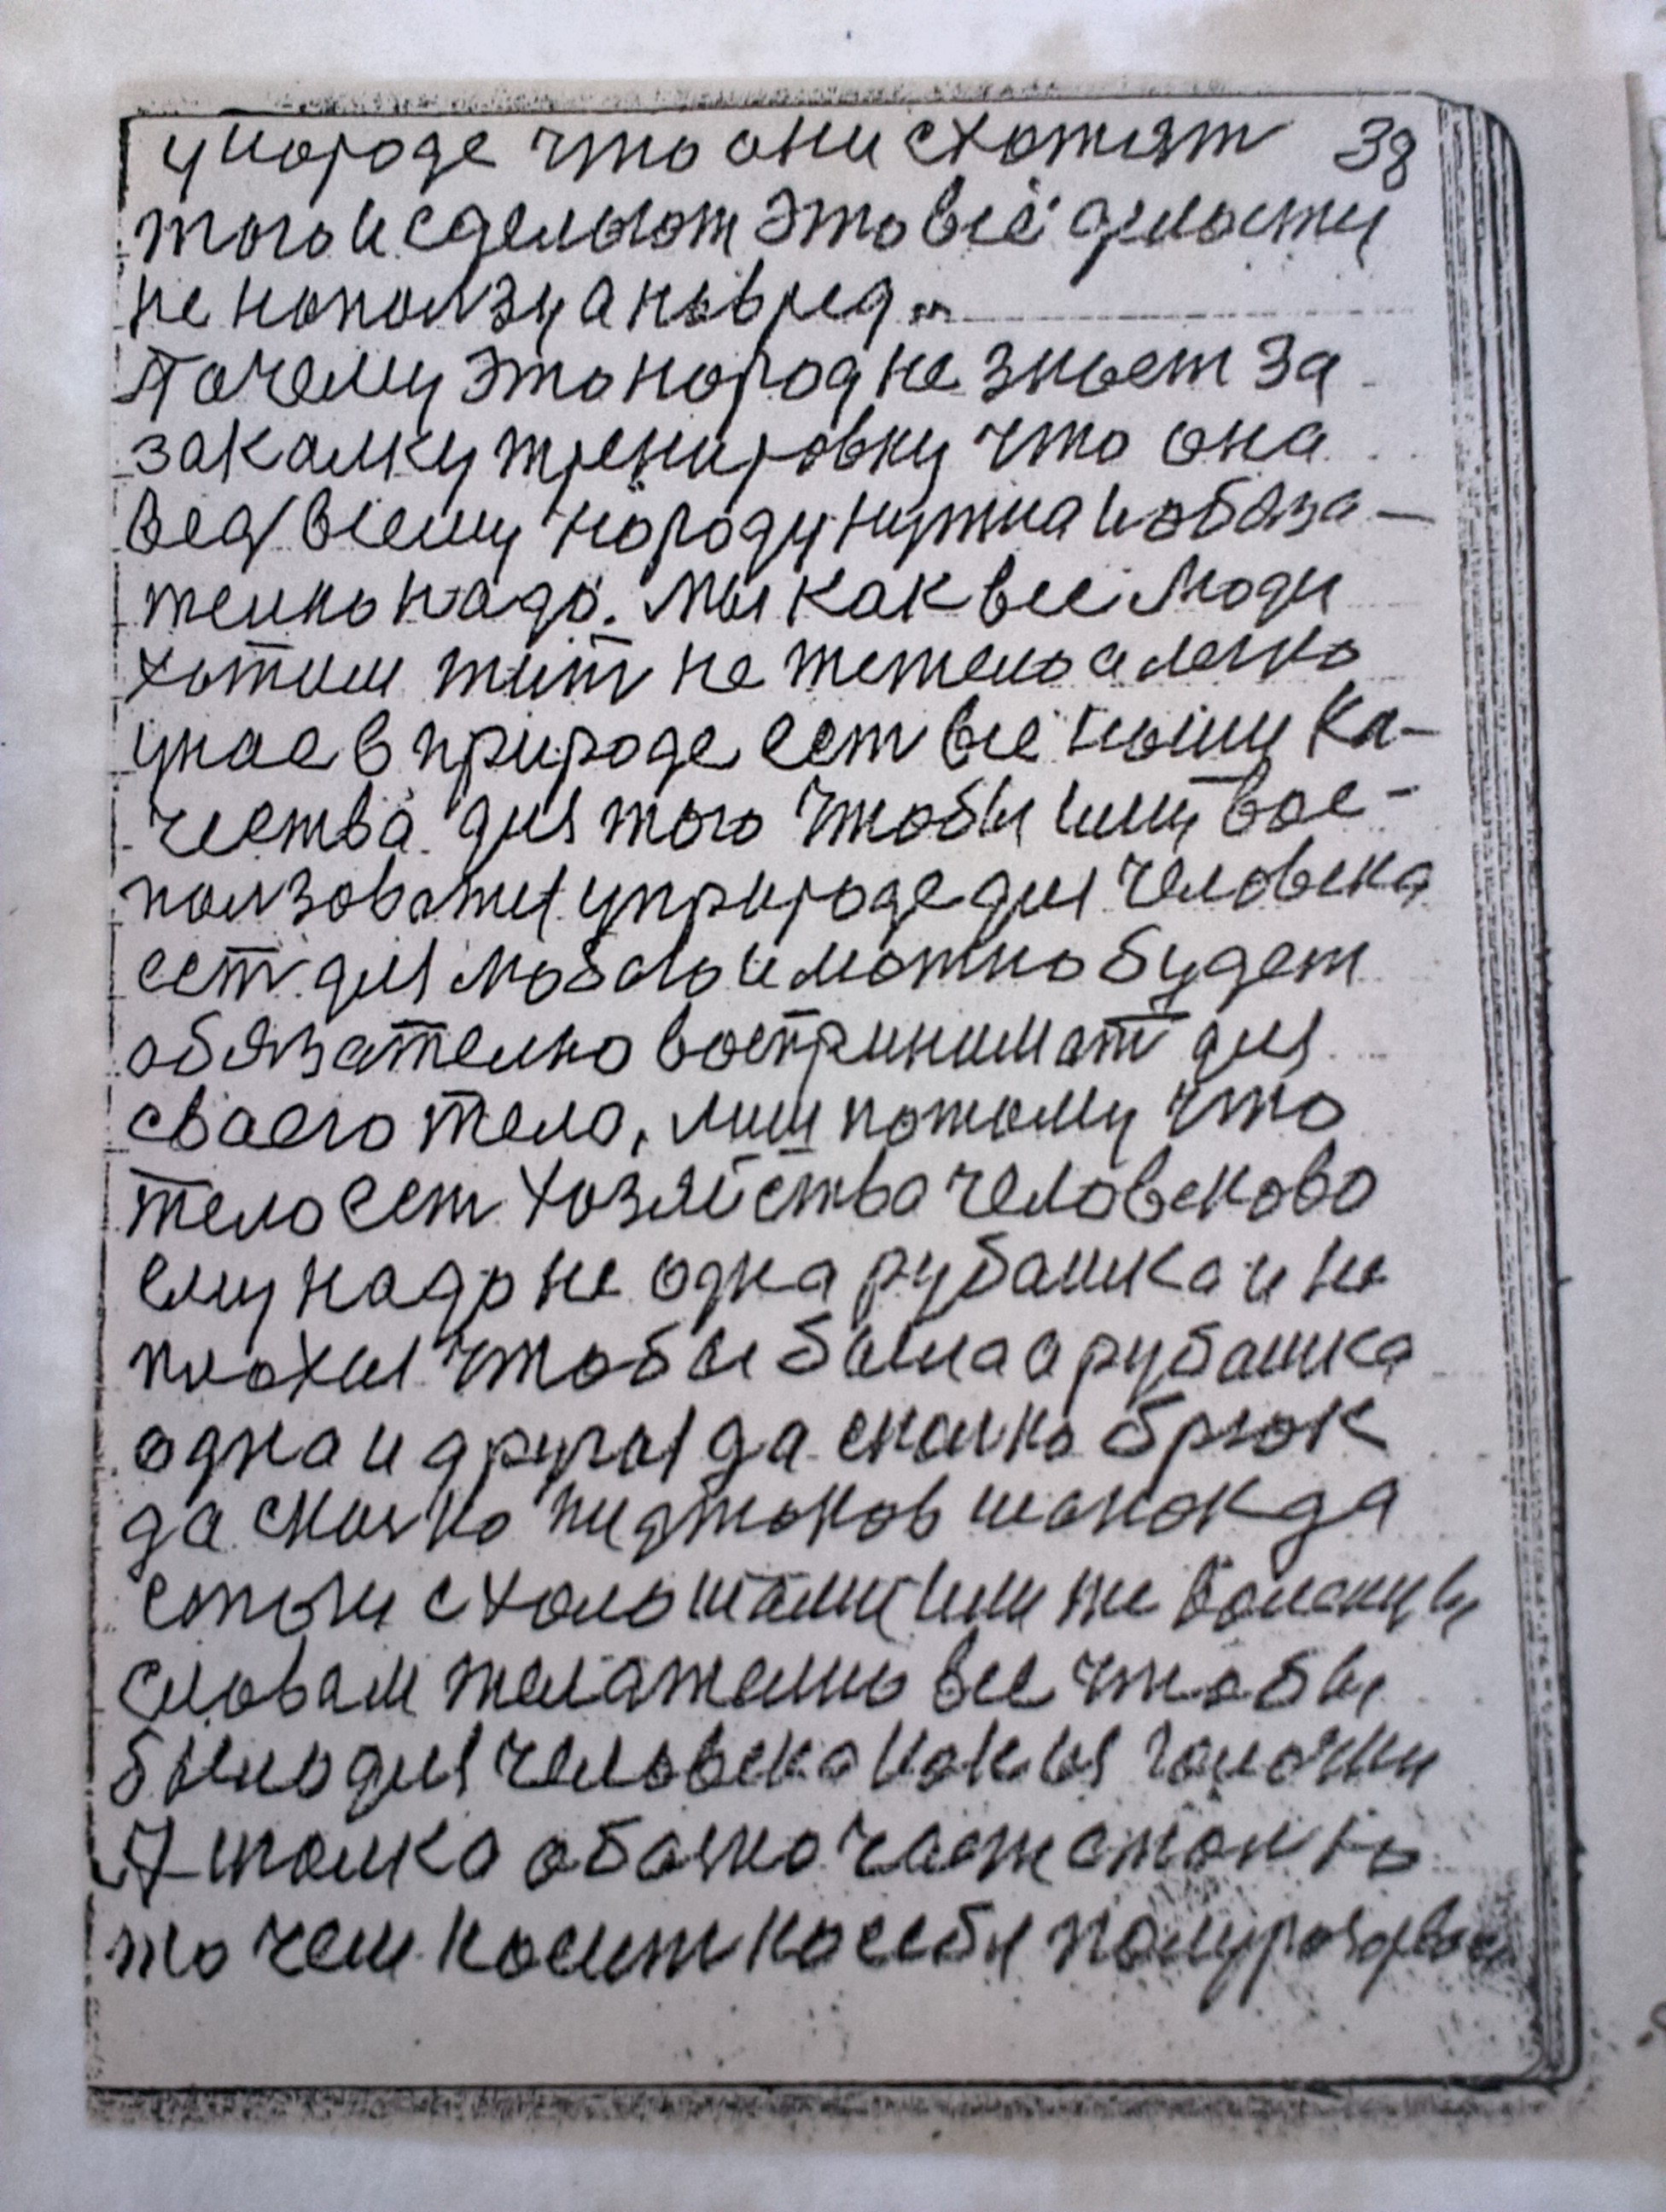 у народе что они схотят 38
того и сделают это всё делается
не на ползу а на вред
Почему это народ не знает за
закалку тренировку что она
вед всему народу нужна и обяза-
телно надо. Мы как все люди
хотим жит не тежело а легко
унас в природе ест всё наши ка-
чества для того чтобы ими вос-
ползоватся у природе для человека
ест для любого и можно будет
обязателно воспринимат для
сваего тело, лиш потому что
тело ест хозяйства человеково
ему надо не одна рубашка и не
плохая чтобы была а рубашка
одна и другая да сколко брюк
да сколко пиджаков шапок да
сапоги с халошами или же
словам желателно все чтобы
было для человека какия
А толка обално част стои на
то чем носит на себя